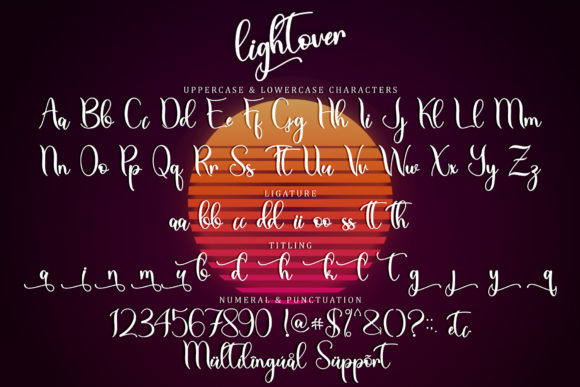 lightover
UPPERCASE & LOWERCASE CHARACTERS
Aa Bb Cc Dd Ee Ff Gg Hh Ii Jj Kk Ll Mm
Nn Oo Pp Qq Rr Ss Tt Uu Vv Ww Xx Yy Zz
LIGATURE
aa bb cc dd ii oo ss tt th
TITLING
a i n m u b d h k l t g j y q
NUMERAL & PUNCTUATION
1234567890 !@#$%^&()?::. etc
Múltilìngúál Sùppõrt